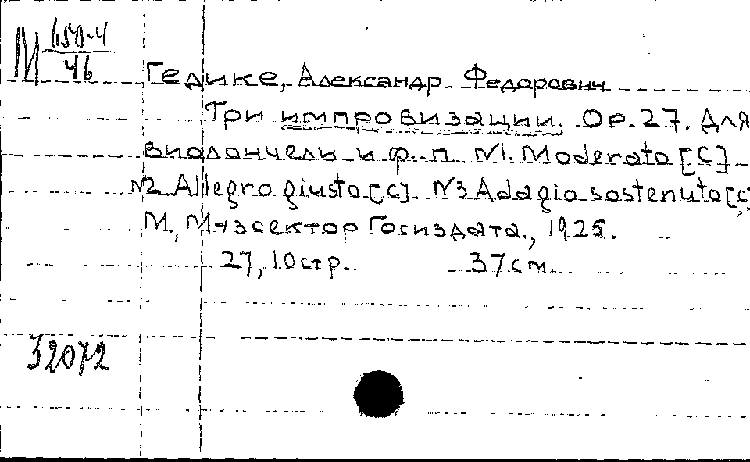 М 650-4
46
Гедике, Александр Федорович
Три импровизации. Op. 27. Для
виолончели и ф.-п. №1. Moderato [C]
№2 Allegro giusto [C]. №3 Adagio sostenuto [C]
М., Музсектор Госиздата., 1925.
27, 10 стр. 37 см.
32072